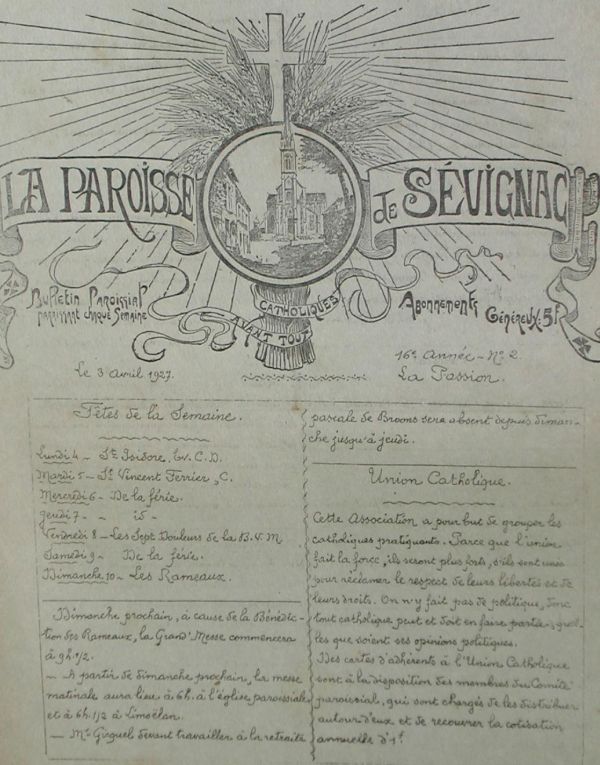 LA PAROISSE de SÉVIGNAC
Bulletin Paroissial
paraissant chaque Semaine
CATHOLIQUES
AVANT TOUT
Abonnements
Généreux: 5f
Le 3 avril 1927.
16e Année - No 2.
La Passion.
Fêtes de la Semaine.
Lundi 4 - St Isidore, Ev. C. D.
Mardi 5 - St Vincent Ferrier, C.
Mercredi 6 - De la férie.
Jeudi 7 - - id -
Vendredi 8 - Les Sept Douleurs de la B. V. M
Samedi 9 - De la férie.
Dimanche 10 - Les Rameaux.
Dimanche prochain, à cause de la Bénédic-
tion des Rameaux, la Grand'Messe commencera
à 9h.1/2.
- A partir de dimanche prochain, la messe
matinale aura lieu à 6h. à l'église paroissiale
et à 6h.1/2 à Limoëlan.
- Mr devant travailler à la retraite
pascale de Broons sera absent depuis diman-
che jusqu'à jeudi.
Union Catholique.
Cette Association a pour but de grouper les
catholiques pratiquants. Parce que l'union
fait la force, ils seront plus forts, s'ils sont unis
pour réclamer le respect de leurs libertés et de
leurs droits. On n'y fait pas de politique, donc
tout catholique peut et doit en faire partie, quel-
les que soient ses opinions politiques.
Des cartes d'adhérents à l'Union Catholique
sont à la disposition des membres du Comité
paroissial, qui sont chargés de les distribuer
autour d'eux et de recouvrer la cotisation
annuelle d'1f.